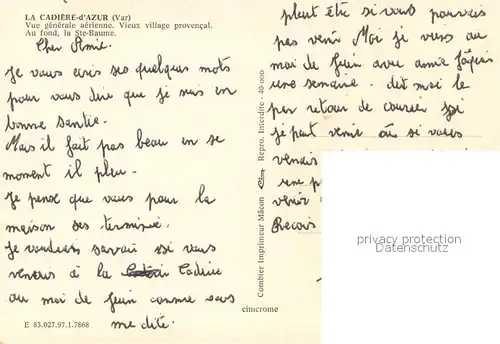 LA CADIÈRE-d'AZUR (Var)
Vue générale aérienne. Vieux village provençal.
Au fond, la Ste-Baume.
Cher Amie.
Je vous écris ses quelques mots
pour vous dire que je suis en
bonne santée.
Mais il fait pas beau en se
moment il pleu.
Je pense que vous pour la
maison ses terminée.
Je voudrais savoir si vous
venous à la Cadière
au moi de juin comme vous
me dite.
E 83.027.97.1.7868
cimcrome
Combier Imprimeur Mâcon Cim Repro. Interdite - 40-000
pleut être si vous pouvais
pas venir Moi je viens au
moi de juin avec amie
une semaine. dit moi le
par retour de courier si
je peut venir ou si vous
venais
une
venir
Recois
privacy protection
watermark